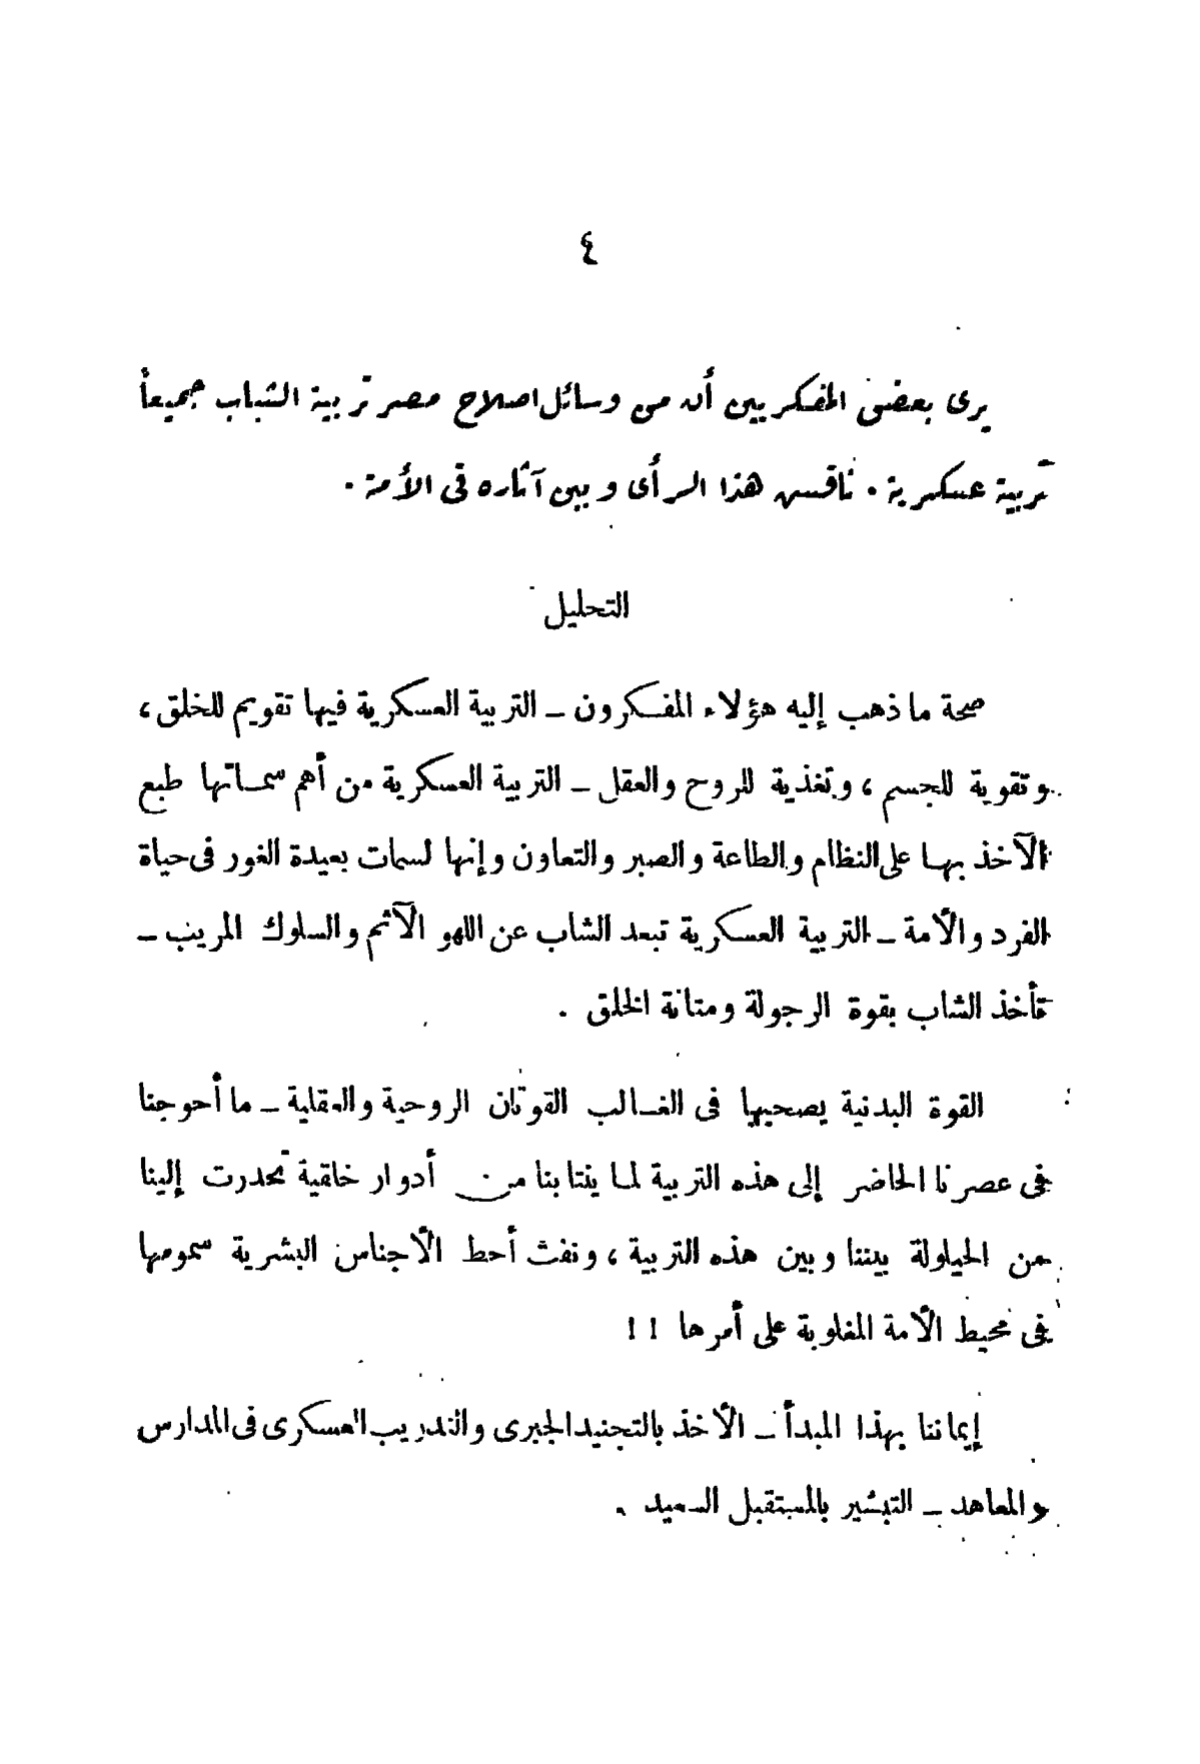 ٤
يرى بعض المفكريين أن من وسائل اصلاح مصر تربية الشباب جميعاً
تربية عسكرية . ناقش هذا الرأى وبين آثاره فى الأمة .
التحليل
صحة ما ذهب إليه هؤلاء المفكرون – التربية العسكرية فيها تقويم للخلق ،
وتقوية للجسم ، وتغذية للروح والعقل – التربية العسكرية من أهم سماتها طبع
الآخذ بها على النظام والطاعة والصبر والتعاون وإنها لسمات بعيدة الغور فى حياة
الفرد والأمة – التربية العسكرية تبعد الشاب عن اللهو الآثم والسلوك المريب –
تأخذ الشاب بقوة الرجولة ومتانة الخلق .
القوة البدنية يصحبها فى الغالب القوتان الروحية والعقلية – ما أحوجنا
فى عصرنا الحاضر إلى هذه التربية لما ينتابنا من أدوار خلقية تحدرت إلينا
من الحيلولة بيننا وبين هذه التربية ، ونفث أحط الأجناس البشرية سمومها
فى محيط الأمة المغلوبة على أمرها ! !
إيماننا بهذا المبدأ – الأخذ بالتجنيد الجبرى والتدريب العسكرى فى المدارس
والمعاهد – التبشير بالمستقبل السعيد .